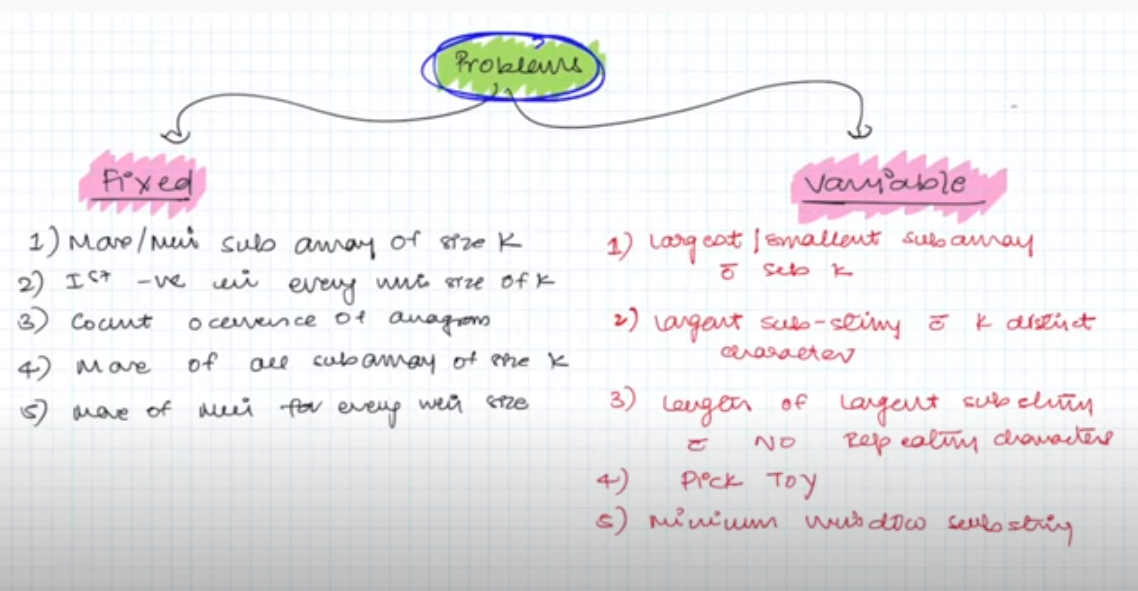 Problems
Fixed
Variable
1) Max/Min sub array of size K
2) Ist -ve in every win size of K
3) Count occurence of anagram
4) Max of all subarray of size K
5) Max of Min for every win size
1) Largest / Smallest sub array
c̄ sum K
2) Largest sub-string c̄ K distinct
character
3) Length of Largest substring
c̄ NO Repeating characters
4) Pick TOY
5) Minimum window substring